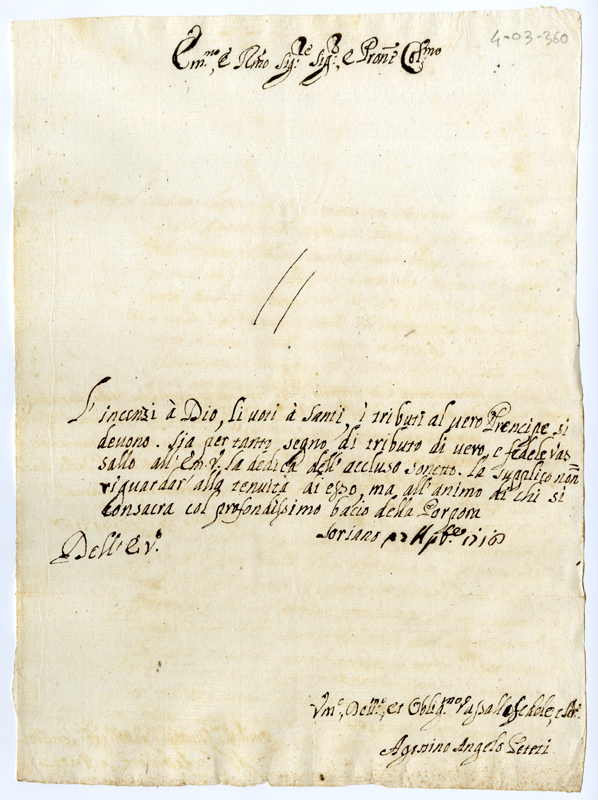 4-03-360
Em.mo, e Rmo Sig.re Sig.r, e Pron.e Col.mo
L'incenzi à Dio, li voti à Santi, i tributi al vero Prencipe si
devono. Sia per tanto segno di tributo di vero, e fedele Vas
sallo all' Em.V. la dedica dell' accluso sonetto. La supplico non
riguardar' alla tenuità di esso, ma all' animo di chi si
consacra col profondissimo bacio della Porpora
Soriano 1716
Dell' E. V.
Vm.e, Dev.mo, et Oblig.mo Vassallo fedele, e Ser.
Agostino Angelo